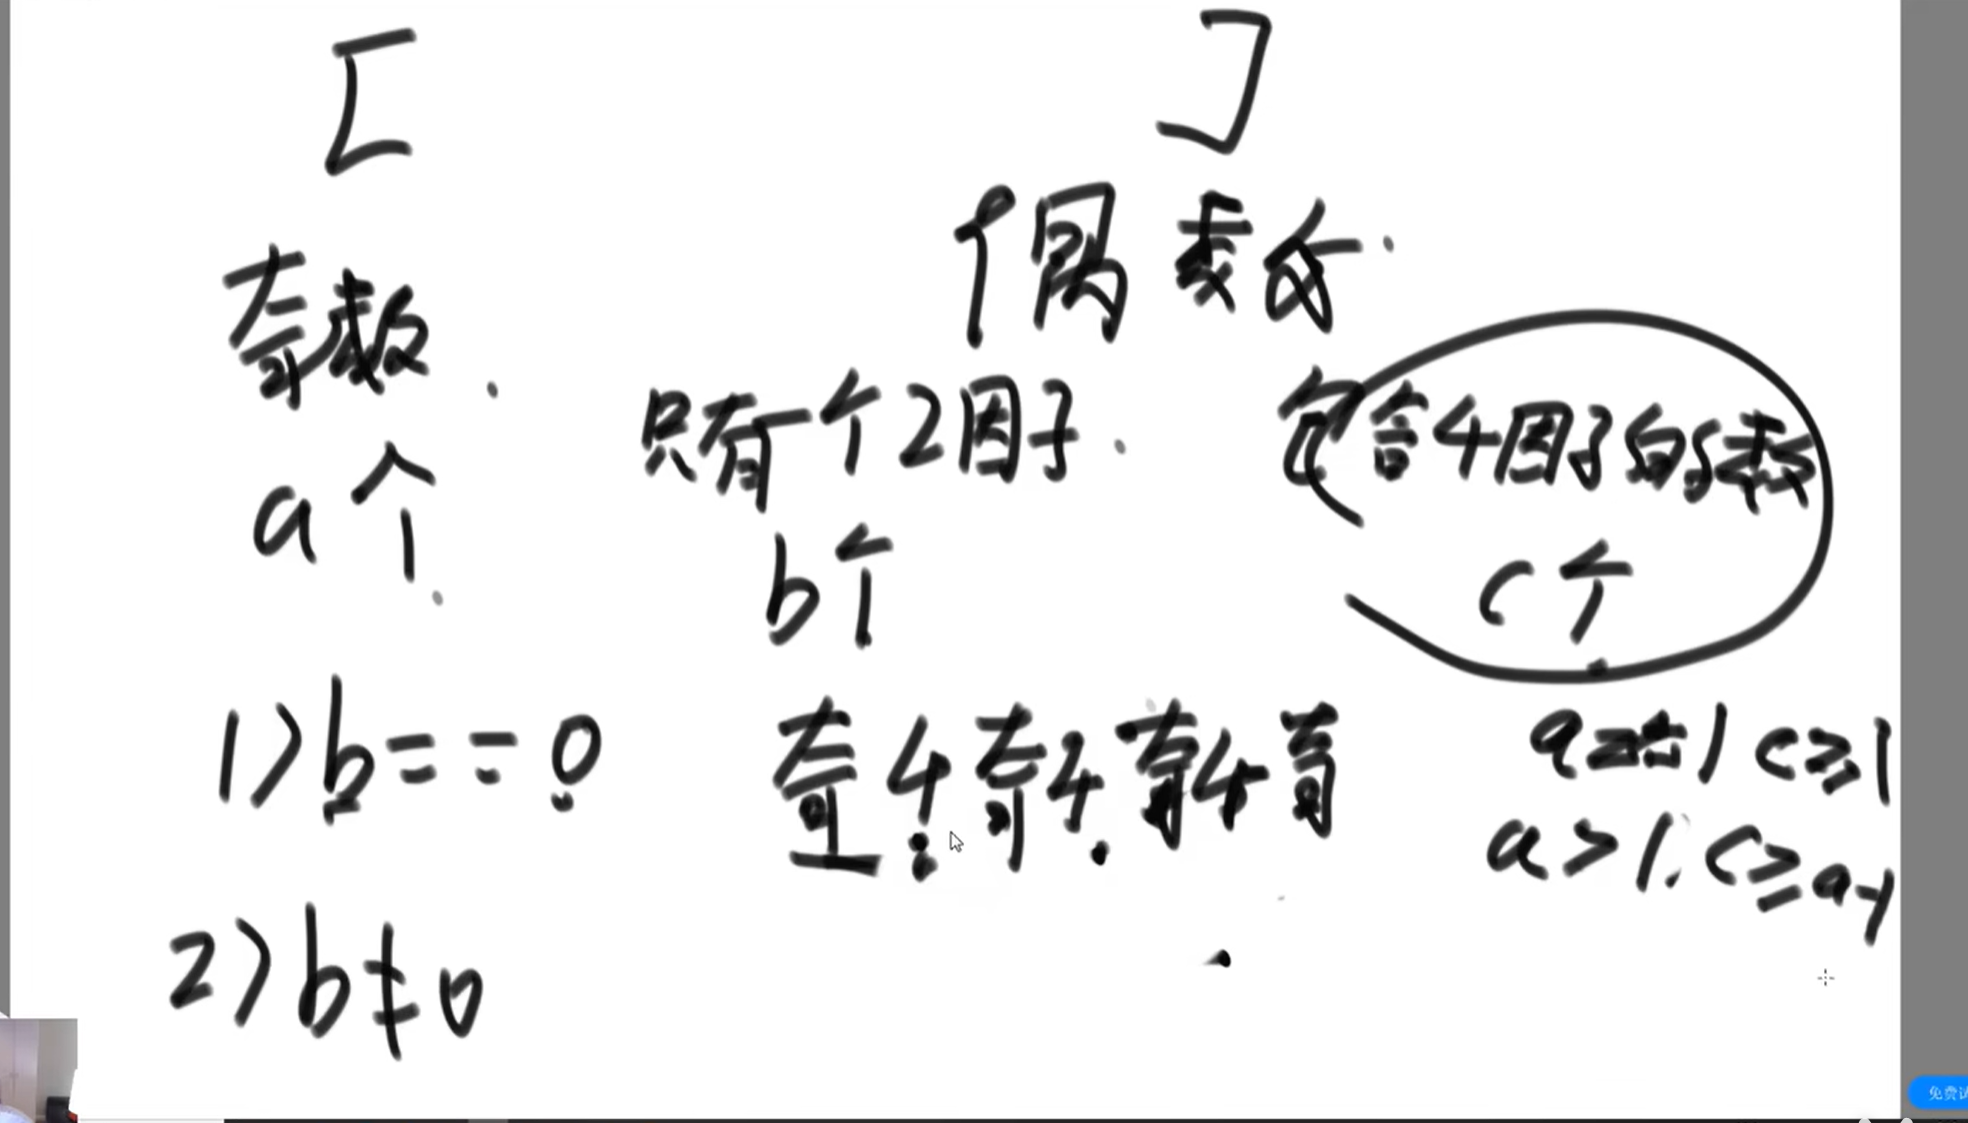 [ ]
奇数.
偶数.
a个.
只有一个2因子.
包含4因子的数
b个
c个.
1) b == 0
奇4奇4奇4奇
a == 1 c≥1
a > 1. c≥a-1
2) b≠0
免费试